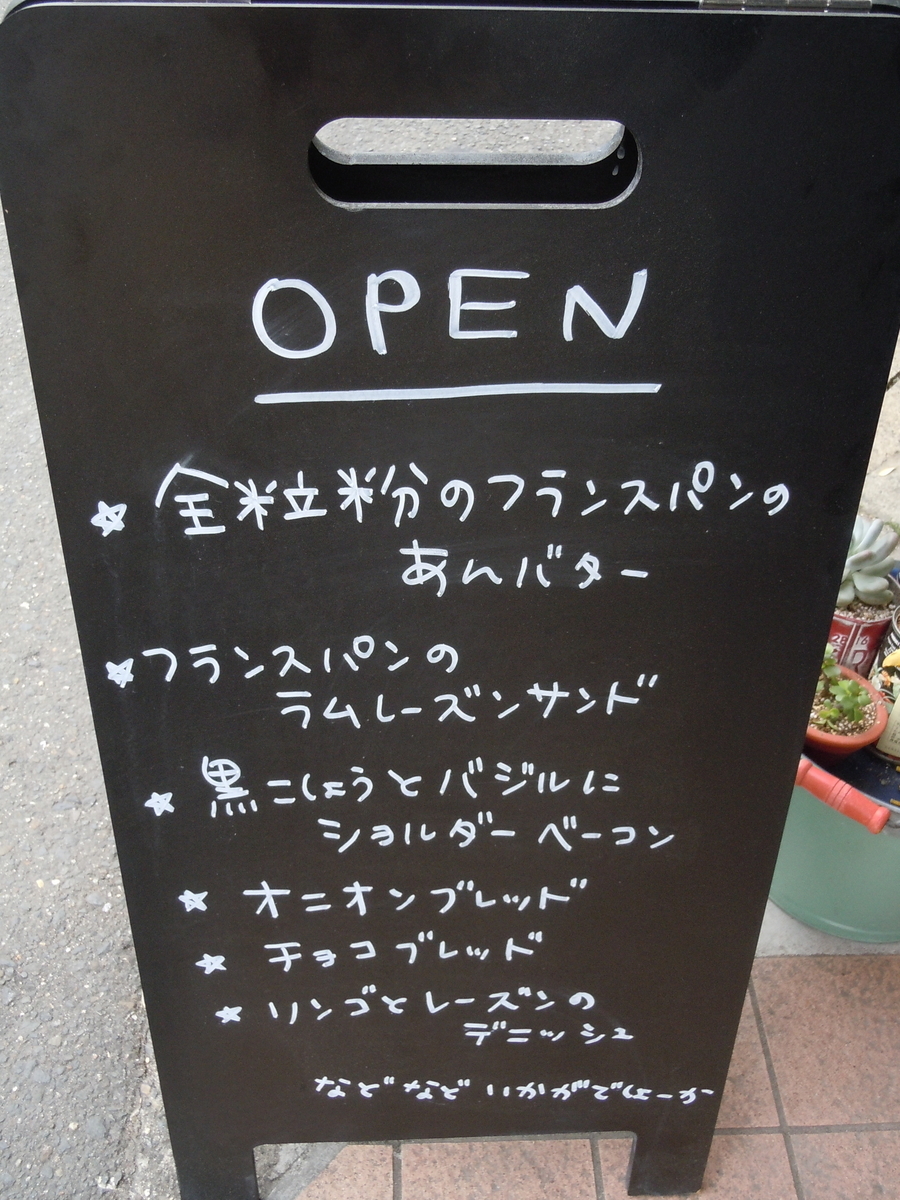 OPEN
☆ 全粒粉のフランスパンの
あんバター
☆フランスパンの
ラムレーズンサンド
☆ 黒こしょうとバジルに
ショルダーベーコン
☆ オニオンブレッド
☆ チョコブレッド
☆ リンゴとレーズンの
デニッシュ
などなど いかがでしょーか